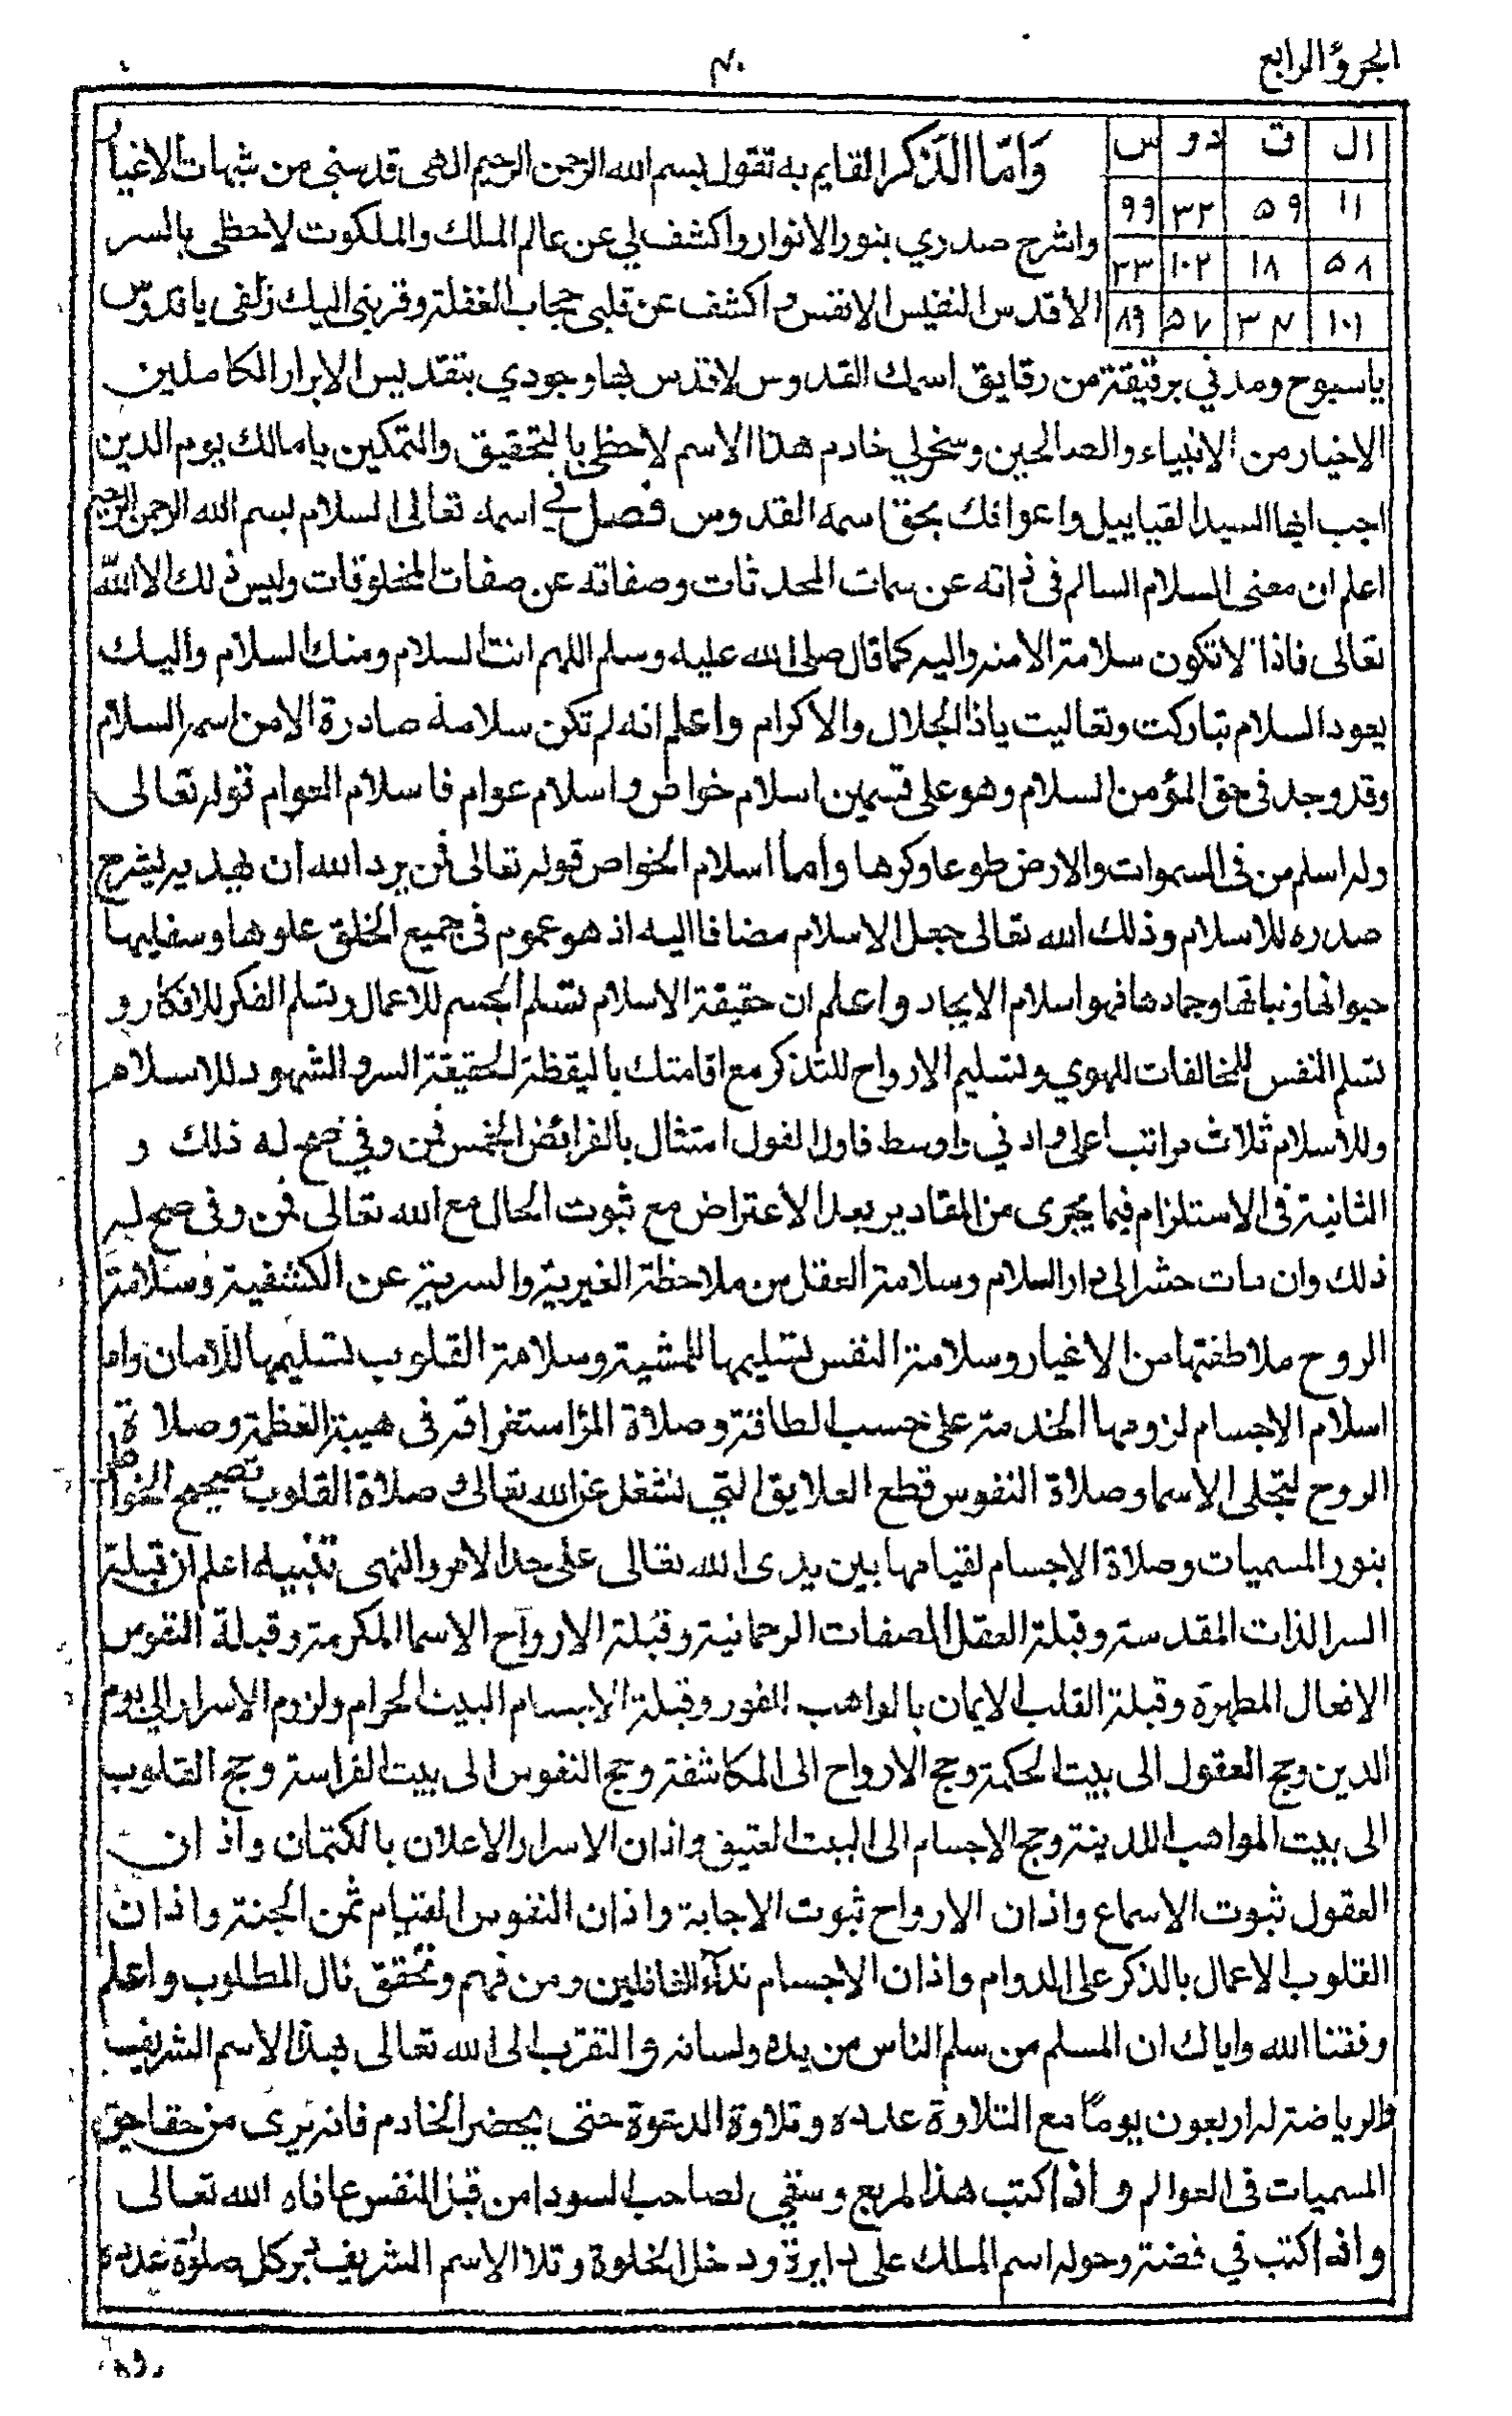 الجزؤ الرابع
٤٠
ال ق دو س
١١ ٥٩ ٣٢ ٩٩
٥٨ ١٨ ١٠٢ ٣٣
١٠١ ٣٤ ٥٧ ٨٩
وَامّا الذكر القايم به تقول بسم الله الرحمن الرحيم الهى قدسنى من شبهات الاغيار
واشرح صدري بنور الانوار واكشف لي عن عالم الملك والملكوت لاحظى بالسر
الأقدس النفيس الانفس و اكشف عن قلبى حجاب الغفلة وقربنى اليك زلفى ياقدوس
ياسبوح ومدني برقيقة من رقايق اسمك القدوس لاقدس بها وجودي بتقديس الابرار الكاملين
الاخيار من الانبياء والصالحين وسخرلي خادم هذا الاسم لاحظى بالتحقيق والتمكين يامالك يوم الدين
اجب ايها السيد القياييل واعوانك بحق اسمه القدوس فصل في اسمه تعالى السلام بسم الله الرحمن الرحيم
اعلم ان معنى السلام السالم فى ذاته عن سمات المحدثات وصفاته عن صفات المخلوقات وليس ذلك الا الله
تعالى فاذا لاتكون سلامة الامنه واليه كما قال صلى الله عليه وسلم اللهم انت السلام ومنك السلام واليك
يعود السلام تباركت وتعاليت ياذا الجلال والاكرام واعلم انه لم تكن سلامة صادرة الامن اسمه السلام
وقد وجد فى حق المؤمن السلام وهو على قسمين اسلام خواص و اسلام عوام فاسلام العوام قوله تعالى
وله اسلم من فى السموات والارض طوعا وكرها واما اسلام الخواص قوله تعالى فمن يرد الله ان يهديه يشرح
صدره للاسلام وذلك الله تعالى جعل الاسلام مضافا اليه اذ هو عموم فى جميع الخلق علوها وسفليها
حيوانها ونباتها وجمادها فهو اسلام الايجاد واعلم ان حقيقة الاسلام تسلم الجسم للاعمال وتسلم الفكر للافكار و
تسلم النفس للمخالفات للهوي وتسليم الارواح للتذكر مع اقامتك باليقظة لحقيقة السر والشهود للاسلام
وللاسلام ثلاث مراتب اعلى وادني واوسط فاول القول امتثال بالفرائض الخمس فمن وفي صح له ذلك و
الثانية فى الاستلزام فيما يجرى من المقادير بعد الأعتراض مع ثبوت الحال مع الله تعالى فمن وفى صح له
ذلك وان مات حشر الى دار السلام وسلامة العقل من ملاحظة الغيرية والسرية عن الكشفية وسلامة
الروح ملاطفتها من الاغيار وسلامة النفس تسليمها للمشية وسلامة القلوب تسليمها للامان واما
اسلام الاجسام لزومها الخدمة على حسب الطاقة وصلاة السر استغراقه فى هيبة العظمة وصلاة
الروح لتجلى الاسما وصلاة النفوس قطع العلايق التي تشغل عن الله تعالى صلاة القلوب تصحيح الخواطر
بنور المسميات وصلاة الاجسام لقيامها بين يدى الله تعالى على حد الامر والنهى تنبيه اعلم ان قبلة
السر الذات المقدسة وقبلة العقل الصفات الرحمانية وقبلة الارواح الاسما المكرمة وقبلة النفوس
الافعال المطهرة وقبلة القلب الايمان بالواهب الفور وقبلة الاجسام البيت الحرام ولزوم الاسرار الي يوم
الدين وحج العقول الى بيت الحكمة وحج الارواح الى المكاشفة وحج النفوس الى بيت الفراسة وحج القلوب
الى بيت المواهب اللدنية وحج الاجسام الى البيت العتيق واذان الاسرار الاعلان بالكتمان واذان
العقول ثبوت الاسماع واذان الارواح ثبوت الاجابة واذان النفوس القيام ثمن الجنة واذان
القلوب الاعمال بالذكر على الدوام واذان الاجسام ندآء الغافلين ومن فهم وتحقق نال المطلوب واعلم
وفقنا الله واياك ان المسلم من سلم الناس من يده ولسانه والتقرب الى الله تعالى بهذا الاسم الشريف
والرياضة له اربعون يومًا مع التلاوة عدده وتلاوة الدعوة حتى يحضر الخادم فانه يرى من حقايق
المسميات فى العوالم واذا كتب هذا لمربع وسقي لصاحب السودا من قبل النفس عافاه الله تعالى
واذا كتب في فضة وحوله اسم الملك على دايرة ودخل الخلوة وتلا الاسم الشريف دبر كل صلوة عدده